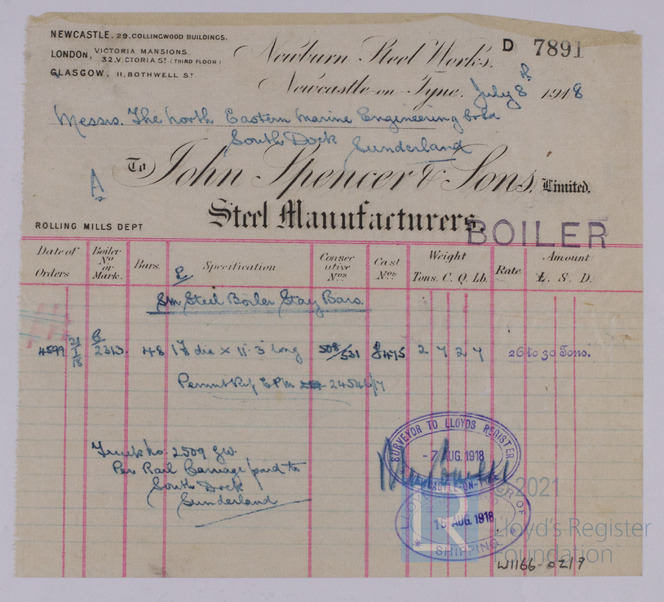 NEWCASTLE, 29, COLLINGWOOD BUILDINGS.
LONDON, VICTORIA MANSIONS.
32, VICTORIA ST (THIRD FLOOR)
GLASGOW, 11, BOTHWELL ST.
Newburn Steel Works,
D 7891
Newcastle-on-Tyne, July 8th 1918
Messrs. The North Eastern Marine Engineering Co Ltd
South Dock Sunderland
A
To John Spencer & Sons, Limited.
Steel Manufacturers.
ROLLING MILLS DEPT
BOILER
Date of Orders
Boiler No or Mark.
Bars.
Specification
Consecutive Nos
Cast Nos
Weight
Tons. C. Q. Lb.
Rate
Amount
£. S. D.
Sm Steel Boiler Stay Bars
4599 21/1/18 B 2313 48 dia x 11' 3" long 508/531 8475 2 7 2 7 26 to 30 Tons.
Permit Ref 24546/7
Truck no 2509 GW
Per Rail Carriage paid to
South Dock
Sunderland
SURVEYOR TO LLOYDS REGISTER
- 7 AUG. 1918
NEWCASTLE-ON-TYNE
16 AUG. 1918
SHIPPING
2021
Lloyd's Register
Foundation
W1166-0219